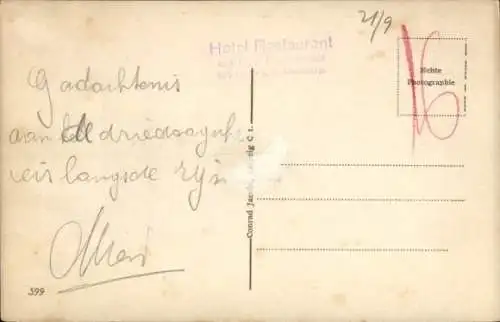 21/9
Hotel Restaurant
Echte
Photographie
Gedachtenis
aan de driedaagsche
reis langsde Rijn
Conrad Jacob, Leipzig C 1.
399